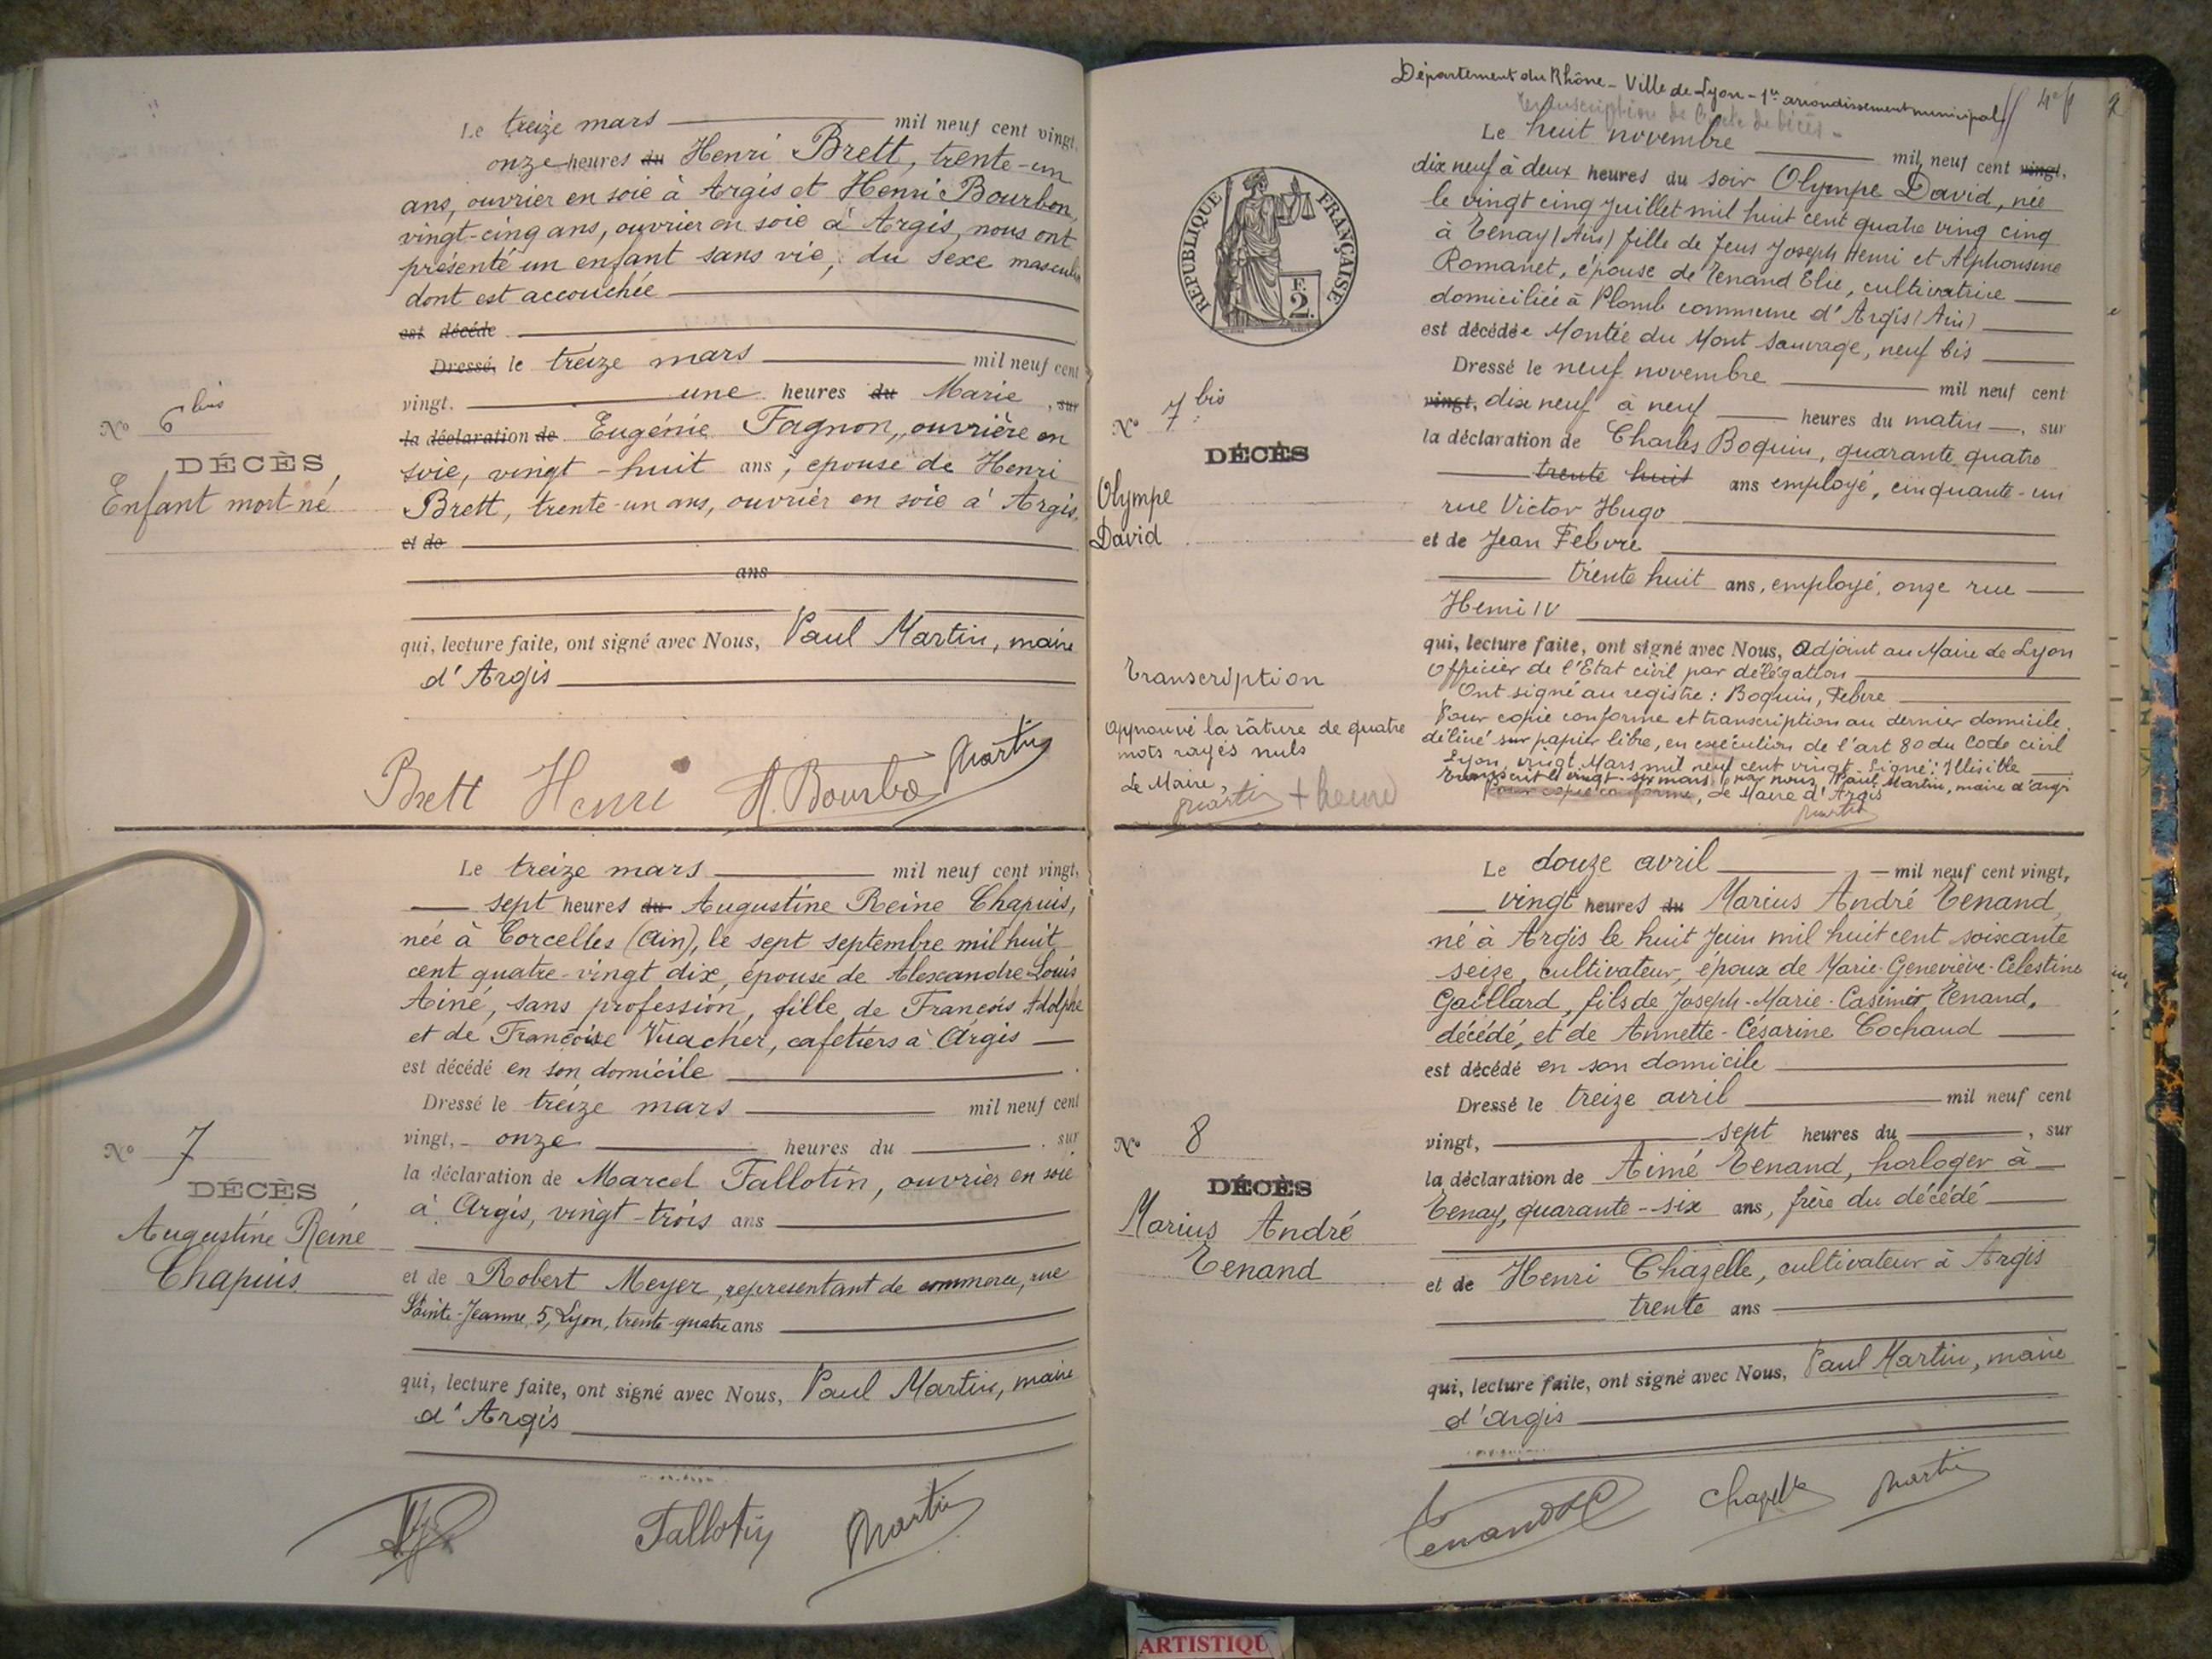 Le treize mars mil neuf cent vingt,
onze heures du Henri Brett, trente-un
ans, ouvrier en soie à Argis et Henri Bourbon,
vingt-cinq ans, ouvrier en soie à Argis, nous ont
présenté un enfant sans vie, du sexe masculin
dont est accouchée
est décédé
Dressé le treize mars mil neuf cent
vingt. une heures du Marie, sur
la déclaration de Eugénie Fagnon, ouvrière en
soie, vingt-huit ans, épouse de Henri
Brett, trente-un ans, ouvrier en soie à Argis,
et de
ans
qui, lecture faite, ont signé avec Nous, Paul Martin, maire
d'Argis
Nº 6 bis
DÉCÈS
Enfant mort-né
Brett Henri H. Bourbo Martin
Le treize mars mil neuf cent vingt,
sept heures du Augustine Reine Chapuis,
née à Corcelles (Ain), le sept septembre mil huit
cent quatre-vingt dix, épouse de Alexandre-Louis
Ainé, sans profession, fille de François Adolphe
et de Françoise Vuacher, cafetiers à Argis
est décédé en son domicile
Dressé le treize mars mil neuf cent
vingt, onze heures du , sur
la déclaration de Marcel Tallotin, ouvrier en soie
à Argis, vingt-trois ans
et de Robert Meyer, representant de commerce, rue
Sainte-Jeanne, 5, Lyon, trente-quatre ans
qui, lecture faite, ont signé avec Nous, Paul Martin, maire
d'Argis
Nº 7
DÉCÈS
Augustine Reine
Chapuis
Tallotin Martin
Département du Rhône - Ville de Lyon - 1er arrondissement municipal
Transcription de l'acte de décès -
Le huit novembre mil neuf cent vingt,
dix neuf à deux heures du soir Olympe David, née
le vingt cinq juillet mil huit cent quatre ving cinq
à Tenay (Ain) fille de feus Joseph Henri et Alphonsine
Romanet, épouse de Tenand Elie, cultivatrice
domiciliée à Plomb commune d'Argis (Ain)
est décédée Montée du Mont Sauvage, neuf bis
Dressé le neuf novembre mil neuf cent
vingt, dix neuf à neuf heures du matin, sur
la déclaration de Charles Boquin, quarante quatre
trente huit ans employé, cinquante-un
rue Victor Hugo
et de Jean Febvre
trente huit ans, employé, onze rue
Henri IV
qui, lecture faite, ont signé avec Nous, Adjoint au Maire de Lyon
Officier de l'Etat civil par délégation
Ont signé au registre : Boquin, Febvre
Pour copie conforme et transcription au dernier domicile
délivré sur papier libre, en exécution de l'art 80 du Code civil
Lyon, vingt Mars mil neuf cent vingt. Signé : Illisible
Transcrit le vingt-six mars, par nous, Paul Martin, maire d'Argis
Pour copie conforme, Le Maire d'Argis
Martin
RÉPUBLIQUE FRANÇAISE
F.
2.
Nº 7 bis
DÉCÈS
Olympe
David
Transcription
Approuvé la râture de quatre
mots rayés nuls
Le Maire,
Martin
Le douze avril mil neuf cent vingt,
vingt heures du Marius André Tenand,
né à Argis le huit juin mil huit cent soixante
seize, cultivateur, époux de Marie-Geneviève-Celestine
Gaillard, fils de Joseph-Marie-Casimir Tenand,
décédé, et de Annette-Césarine Cochaud
est décédé en son domicile
Dressé le treize avril mil neuf cent
vingt, sept heures du , sur
la déclaration de Aimé Tenand, horloger à
Tenay, quarante-six ans, frère du décédé
et de Henri Chazelle, cultivateur à Argis
trente ans
qui, lecture faite, ont signé avec Nous, Paul Martin, maire
d'argis
Nº 8
DÉCÈS
Marius André
Tenand
Tenand Chazelle Martin
ARTISTIQU